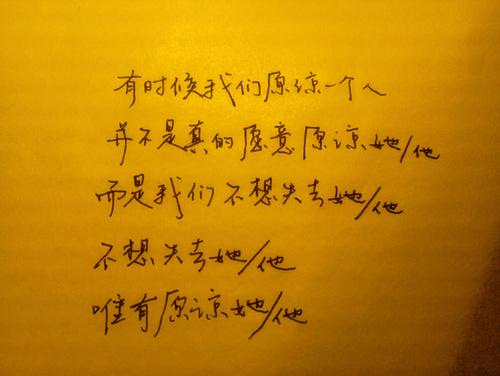 有时候我们原谅一个人
并不是真的愿意原谅她/他
而是我们不想失去她/他
不想失去她/他
唯有原谅她/他